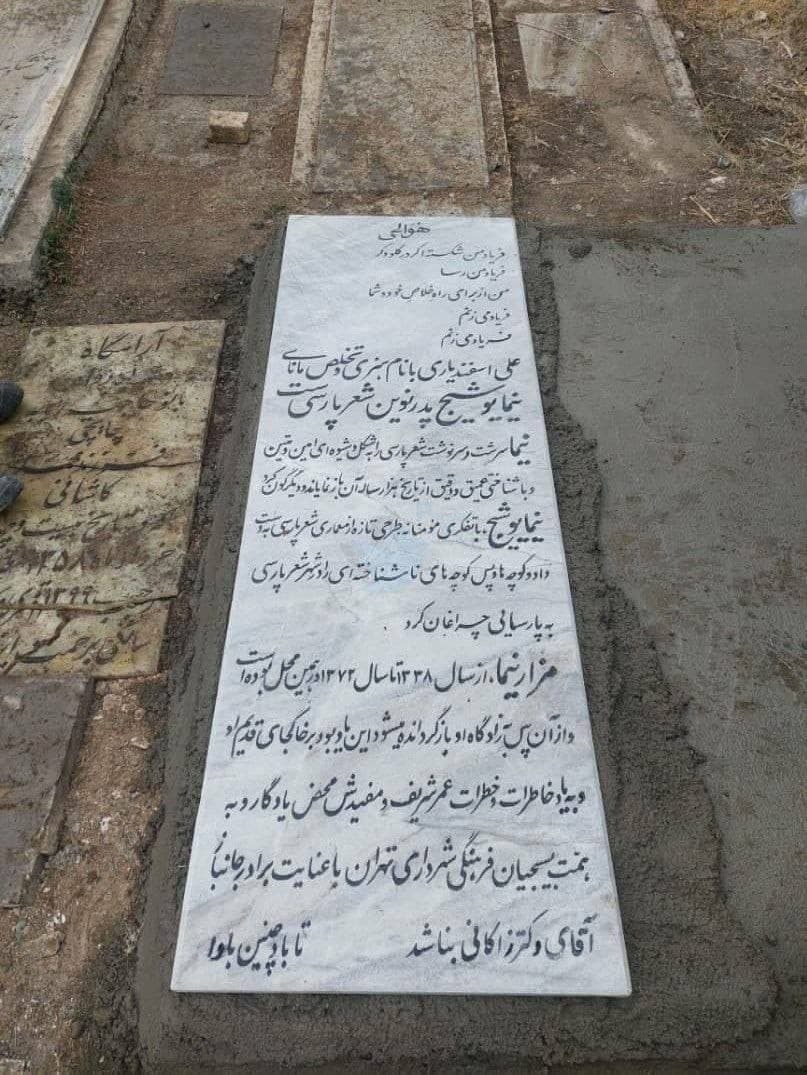 هوالحی
فریاد من شکسته اگر در گلو و گر
فریاد من رسا
من از برای راه خلاص خود و شما
فریاد می زنم
فریاد می زنم
علی اسفندیاری با نام هنری و تخلص مانای
نیما یوشیج پدر نوین شعر پارسی ست
نیما سرشت و سرنوشت شعر پارسی را به شکل و شیوه ای امین و متین
و با شناختی عمیق و دقیق از تاریخ هزار ساله آن باز نمایاند و دیگرگون کرد
نیما یوشیج، با تفکری مؤمنانه طرحی تازه از معماری شعر پارسی به دست
داد و کوچه ها و پس کوچه های ناشناخته ای را در شهر شعر پارسی
به پارسایی چراغان کرد
مزار نیما، از سال ۱۳۳۸ تا سال ۱۳۷۲ در همین محل بوده است
و از آن پس به زادگاه او بازگردانده میشود این یادبود بر خاکجای قدیم او
و به یاد خاطرات و خطرات عمر شریف و مفیدش محض یادگار و به
همت بسیجیان فرهنگی شهرداری تهران با عنایت برادر جانباز
آقای دکتر زاکانی بنا شد تا باد چنین بادا
آرامگاه
چایچی
فرزند محمد
کاشانی